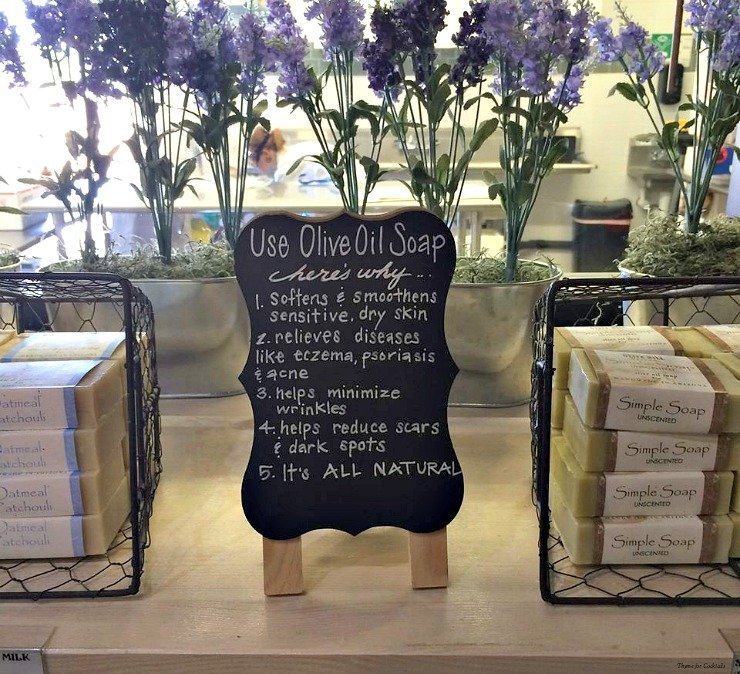 Use Olive Oil Soap
here's why...
1. Softens & smoothens
sensitive, dry skin
2. relieves diseases
like eczema, psoriasis
& acne
3. helps minimize
wrinkles
4. helps reduce scars
& dark spots
5. It's ALL NATURAL
Oatmeal
Patchouli
Oatmeal
Patchouli
Oatmeal
Patchouli
Oatmeal
Patchouli
Simple Soap
UNSCENTED
Simple Soap
UNSCENTED
Simple Soap
UNSCENTED
Simple Soap
UNSCENTED
MILK
Thyme for Cocktails